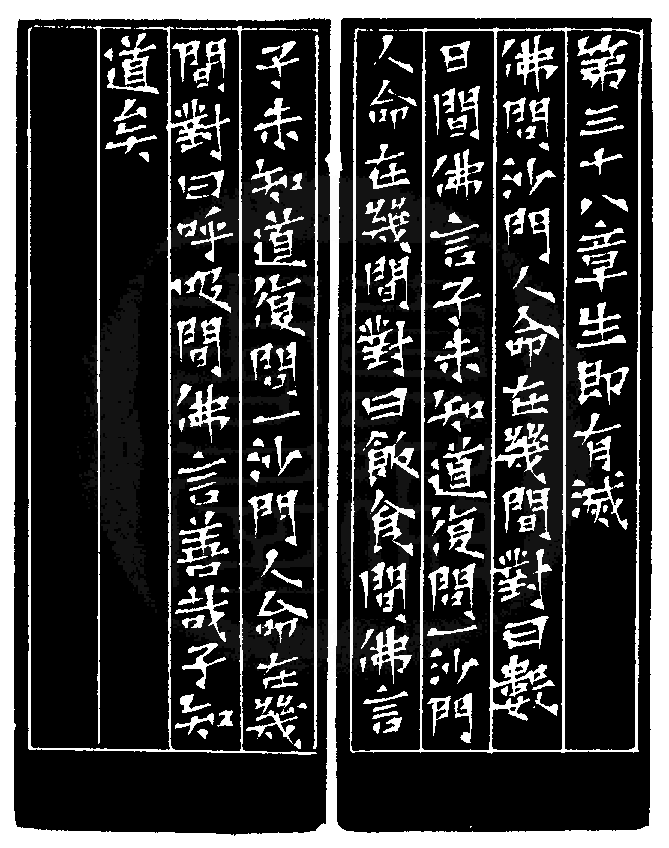 第三十八章生即有滅
佛問沙門人命在幾間對曰數
日間佛言子未知道復問一沙門
人命在幾間對曰飯食間佛言
子未知道復問一沙門人命在幾
間對曰呼吸間佛言善哉子知
道矣